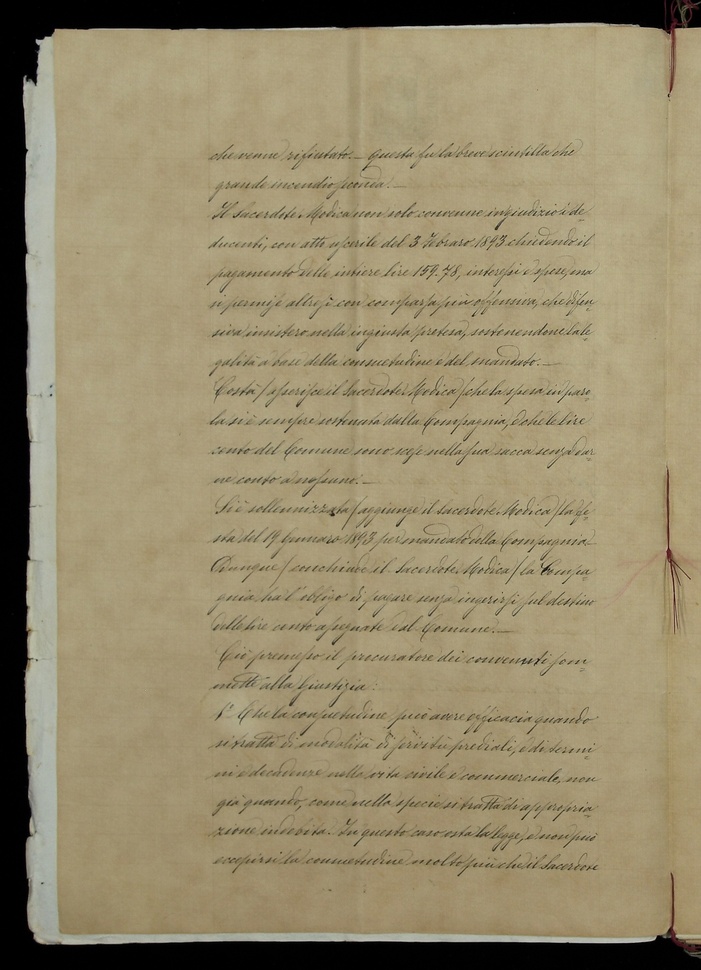 che venne rifiutato. — Questa fu la breve scintilla che
grande incendio seconda. —
Il Sacerdote Modica non solo convenne in giudizio i de-
ducenti, con atto uscerile del 3 Febraro 1893 chiedendo il
pagamento delle intiere lire 159.78, interessi e spese, ma
si permise altresì con comparsa più offensiva, che difen-
siva insistere nella ingiusta pretesa, sostenendone la le-
galità a base della consuetudine e del mandato. —
Costà / asserisce il Sacerdote Modica / che la spesa in paro-
la si è sempre sostenuta dalla Compagnia, e che le lire
cento del Comune sono scese nella sua sacca senza dar-
ne conto a nessuno. —
Si è sollennizzata / aggiunge il Sacerdote Modica / la fe-
sta del 19 Gennaro 1893 per mandato della Compagnia.
Dunque / conchiude il Sacerdote Modica / la Compa-
gnia ha l'obligo di pagare senza ingerirsi sul destino
delle lire cento assegnate dal Comune. —
Ciò premesso il procuratore dei convenuti som-
mette alla Giustizia:
1° Che la consuetudine può avere efficacia quando
si tratta di modalità di servitù prediali, e di termi-
ni e decadenze nella vita civile e commerciale, non
già quando, come nella specie si tratta di appropria-
zione indebita. In questo caso osta la legge, e non può
eccepirsi la consuetudine molto più che il Sacerdote